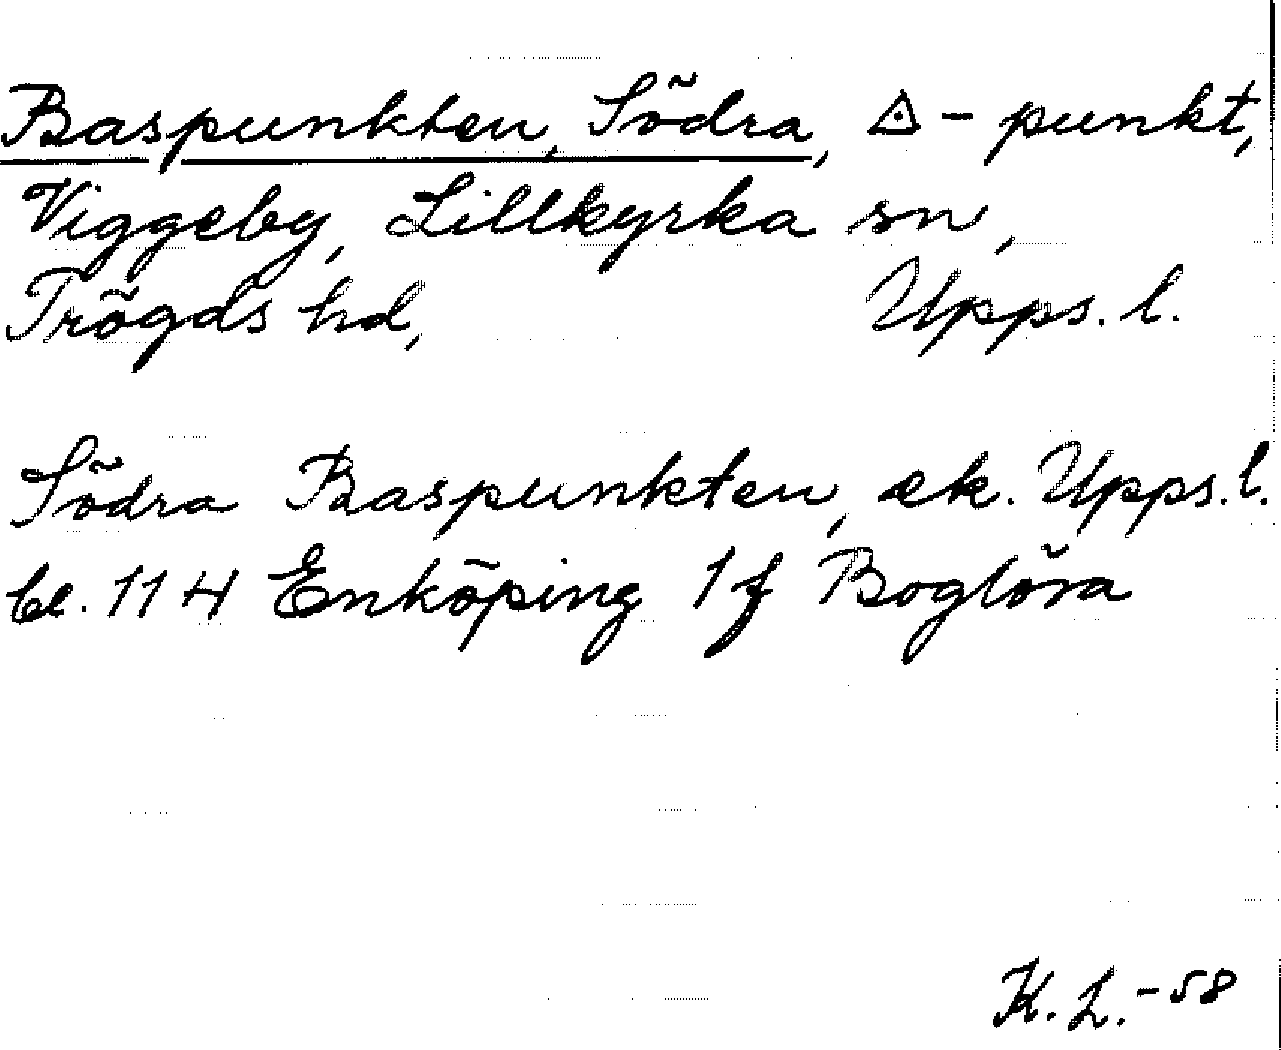 Baspunkten, Södra, ◬-punkt,
Viggeby, Lillkyrka sn,
Trögds hd, Upps. l.
Södra Baspunkten, ek. Upps. l.
bl. 114 Enköping 1 f Boglösa
K. L. -58